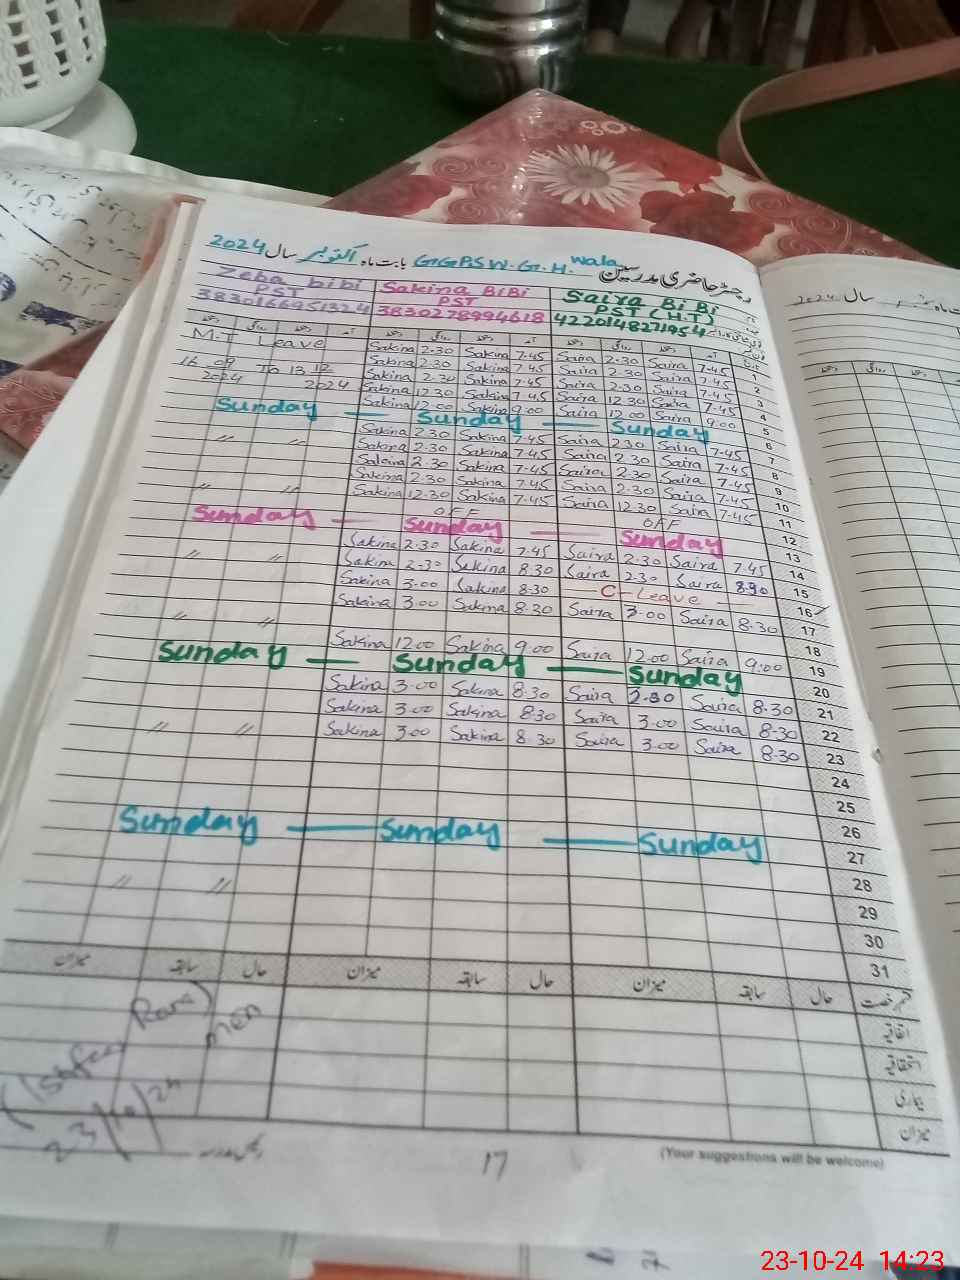 رجسٹر حاضری مدرسین G.G.P.S W.G.H. Wala بابت ماہ اکتوبر سال 2024
Zeba bibi Sakina BiBi Saira Bi Bi
PST PST PST (H.T)
3830166951324 3830278994618 4220148271954
M.T Leave
16 09 2024 To 13 12 2024
Sakina 2.30 Sakina 7.45 Saira 2.30 Saira 7.45 1
Sakina 2.30 Sakina 7.45 Saira 2.30 Saira 7.45 2
Sakina 2.30 Sakina 7.45 Saira 2.30 Saira 7.45 3
Sakina 12.30 Sakina 7.45 Saira 12.30 Saira 7.45 4
Sakina 12.00 Sakina 9.00 Saira 12.00 Saira 9.00 5
Sunday — Sunday — Sunday 6
Sakina 2.30 Sakina 7.45 Saira 2.30 Saira 7.45 7
〃 〃 Sakina 2.30 Sakina 7.45 Saira 2.30 Saira 7.45 8
Sakina 2.30 Sakina 7.45 Saira 2.30 Saira 7.45 9
Sakina 2.30 Sakina 7.45 Saira 2.30 Saira 7.45 10
〃 〃 Sakina 12.30 Sakina 7.45 Saira 12.30 Saira 7.45 11
OFF OFF 12
Sunday — Sunday — Sunday 13
Sakina 2.30 Sakina 7.45 Saira 2.30 Saira 7.45 14
〃 〃 Sakina 2.30 Sakina 8.30 Saira 2.30 Saira 15
Sakina 3.00 Sakina 8.30 — C-Leave — 16
Sakina 3.00 Sakina 8.30 Saira 3.00 Saira 8.30 17
〃 〃 18
Sakina 12.00 Sakina 9.00 Saira 12.00 Saira 9:00 19
Sunday — Sunday — Sunday 20
Sakina 3.00 Sakina 8.30 Saira 2.30 Saira 8.30 21
Sakina 3.00 Sakina 8.30 Saira 3.00 Saira 8.30 22
〃 〃 Sakina 3.00 Sakina 8.30 Saira 3.00 Saira 8.30 23
24
25
26
Sunday — Sunday — Sunday 27
28
〃 〃 29
30
31
میزان سابقہ حال میزان سابقہ حال میزان سابقہ حال قسم رخصت
اتفاقیہ
استحقاقیہ
بیماری
میزان
23/10/24
رئیس مدرسہ
17
(Your suggestions will be welcome)
سال 2024
23-10-24 14:23